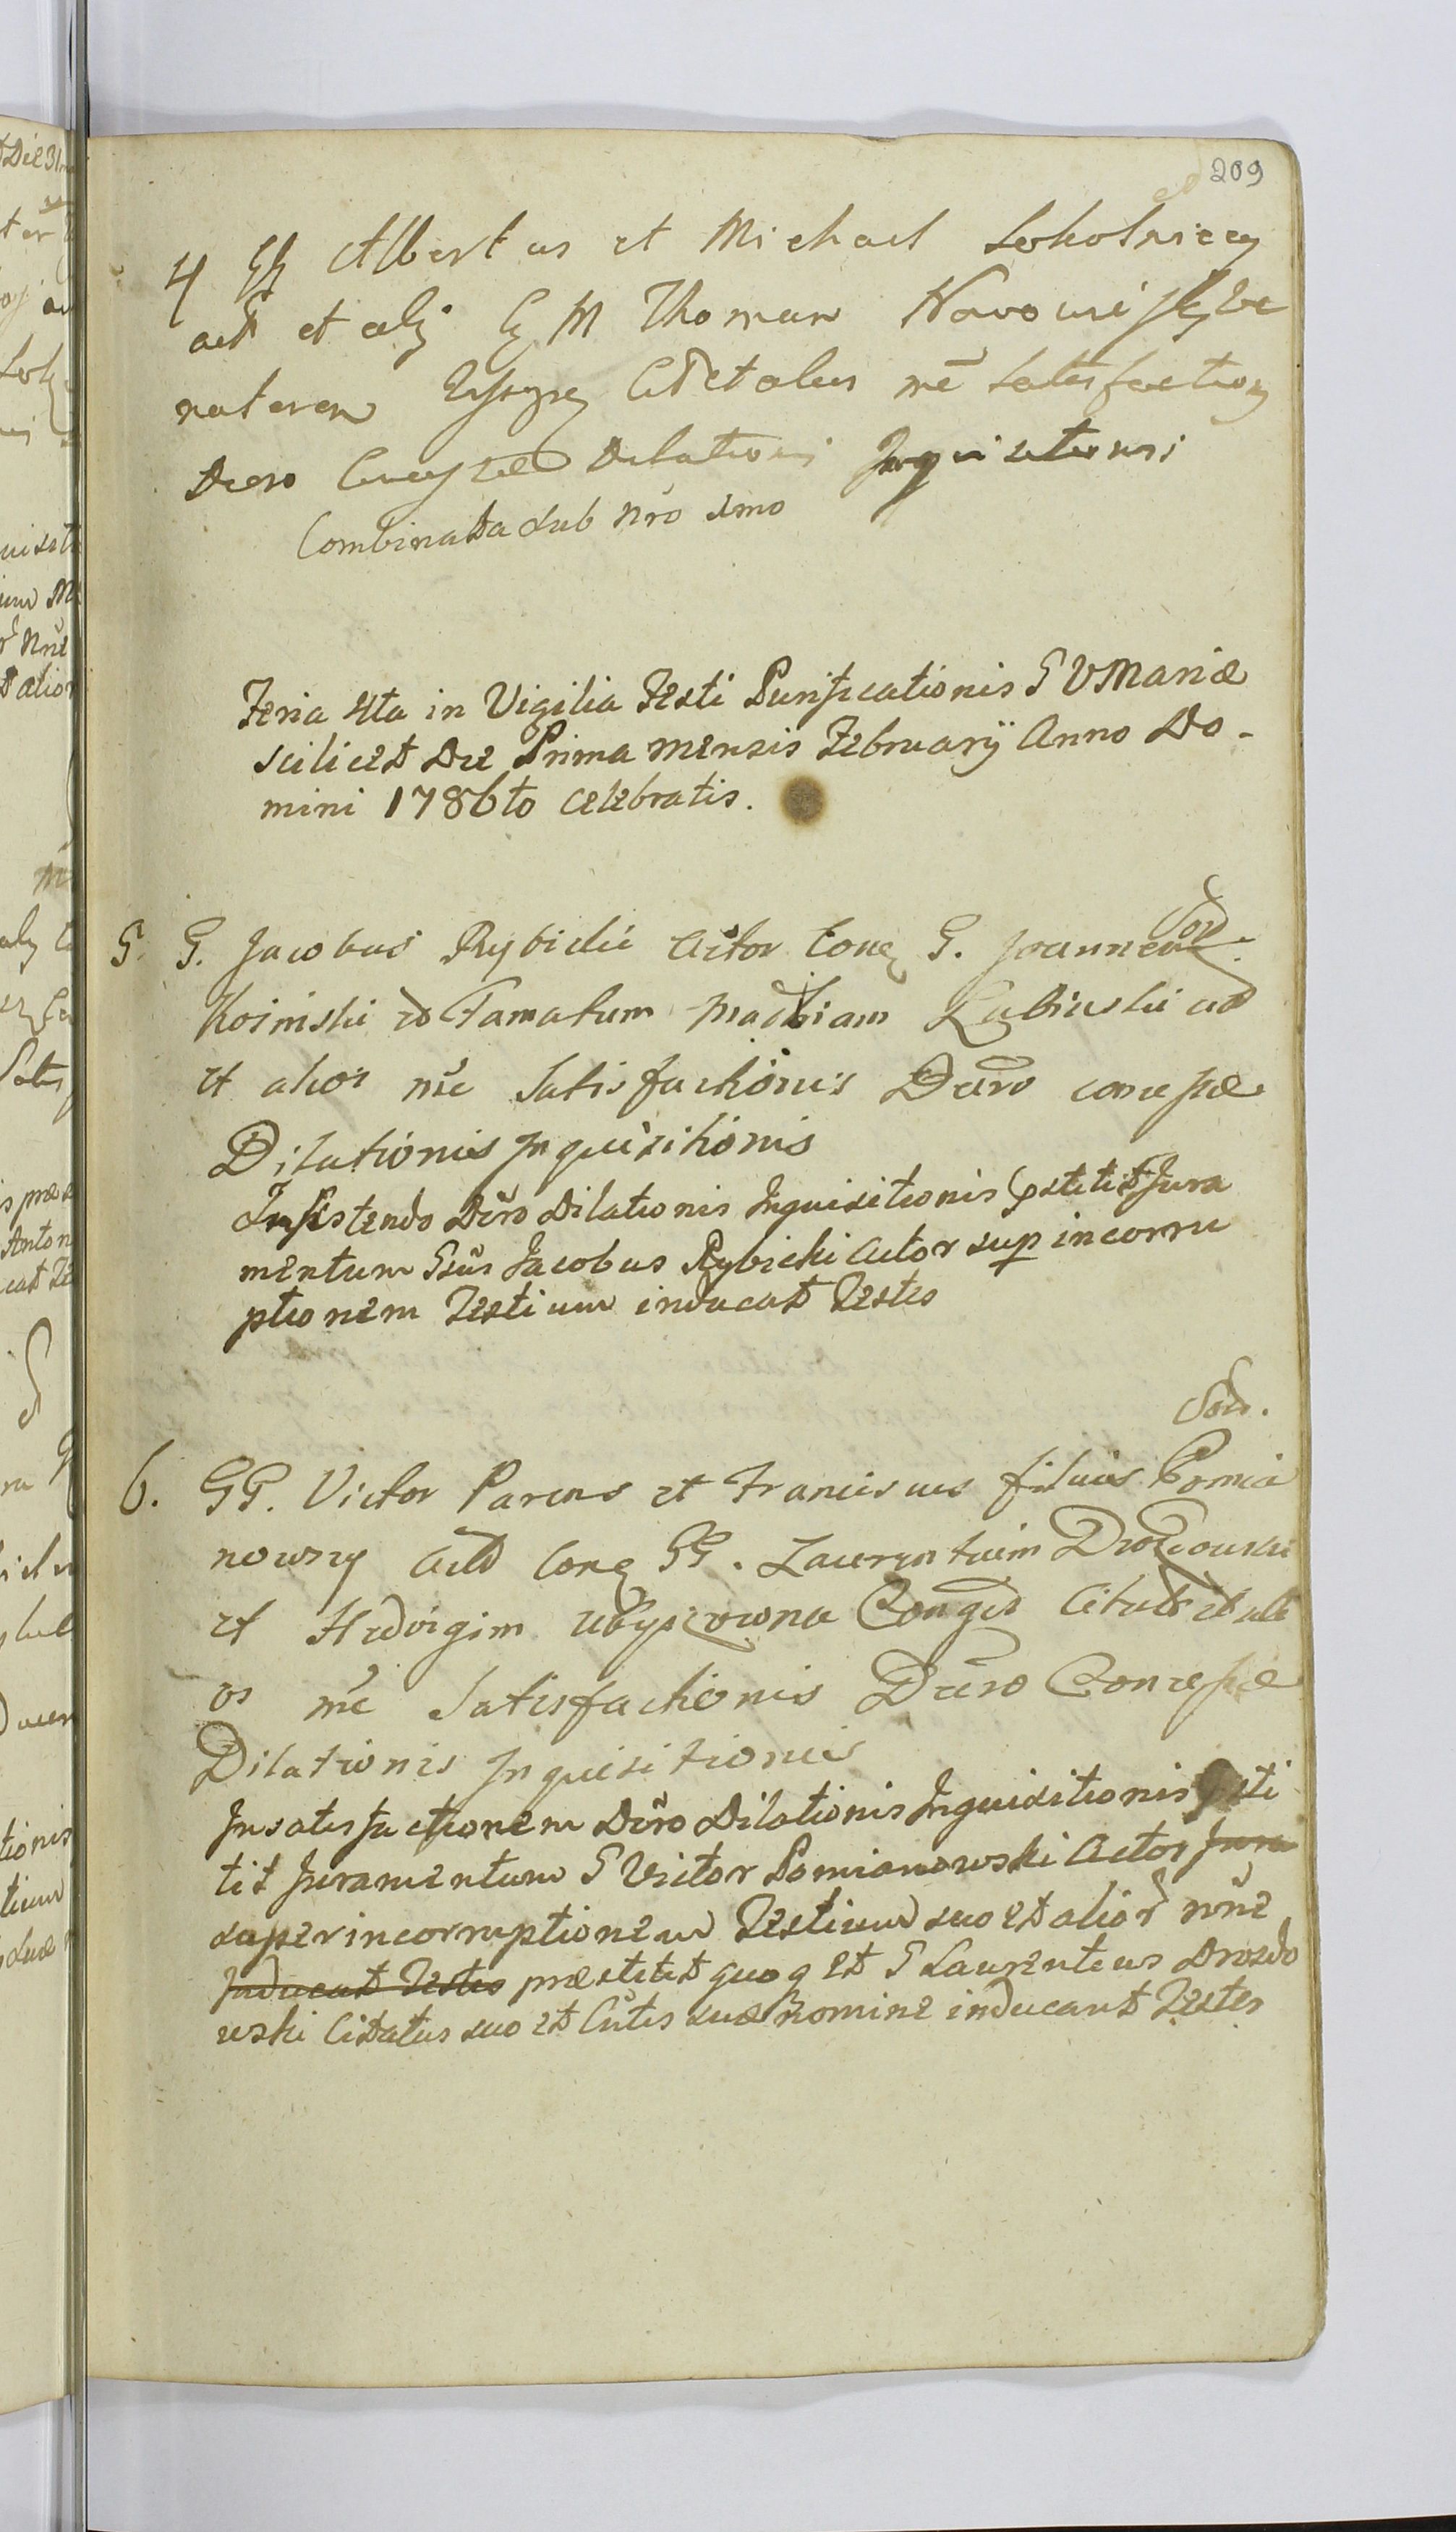 209
4 GG Albertus et Michael Sokolniccy
act et alÿ C M Thomam
naterem Citet alios më satisfactioni
Decro Dilationis Inquisitionis
Combinata sub Nrö 2mo
Feria 4ta in Vigilia Festi Purificationis B V Mariæ
scilicet Die Prima mensis Februarÿ Anno Do-
mini 1786to celebratis.
5. G. Jacobus Rybicki Actor Conq G. Joannem
Koinski et Famatum Mathiam Lubinski cit
et alios më Satisfactionis Decro concessæ
Dilationis Inquisitionis
Insistendo Decrö Dilationis Inquisitionis pstitit Jura
mentum Gsus Jacobus Rybicki Actor sup incorru
ptionem Testium inducat Testes
Sod.
6. GG. Victor Parens et Franciscus filius Pomia
nowscy Act Conq GG. Laurentium Drozdowski
et Hedvigim Conged Citatos et ali
os më Satisfactionis Decro Concessæ
Dilationis Inquisitionis
In satisfactionem Decrö Dilationis Inquisitionis psti
tit Juramentum G Victor Pomianowski Actor Jura
super incorruptionem Testium suo et alior nöne
Inducat Testes præstitit quoq et G Laurentius Drozdo
wski Citatus suo et Cntis suæ nomine inducant Testes